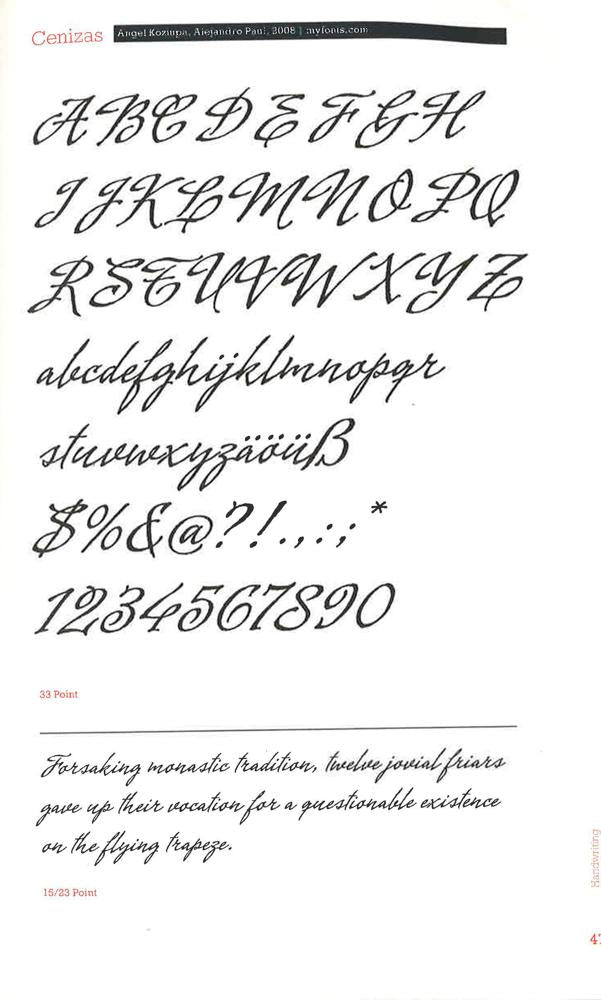 Cenizas
Angel Koziupa, Alejandro Paul, 2008 | myfonts.com
ABCDEFGH
IJKLMNOPQ
RSTUVWXYZ
abcdefghijklmnopqr
stuvwxyzäöüß
$%&@?!.,:;*
1234567890
33 Point
Forsaking monastic tradition, twelve jovial friars
gave up their vocation for a questionable existence
on the flying trapeze.
15/23 Point
Handwriting